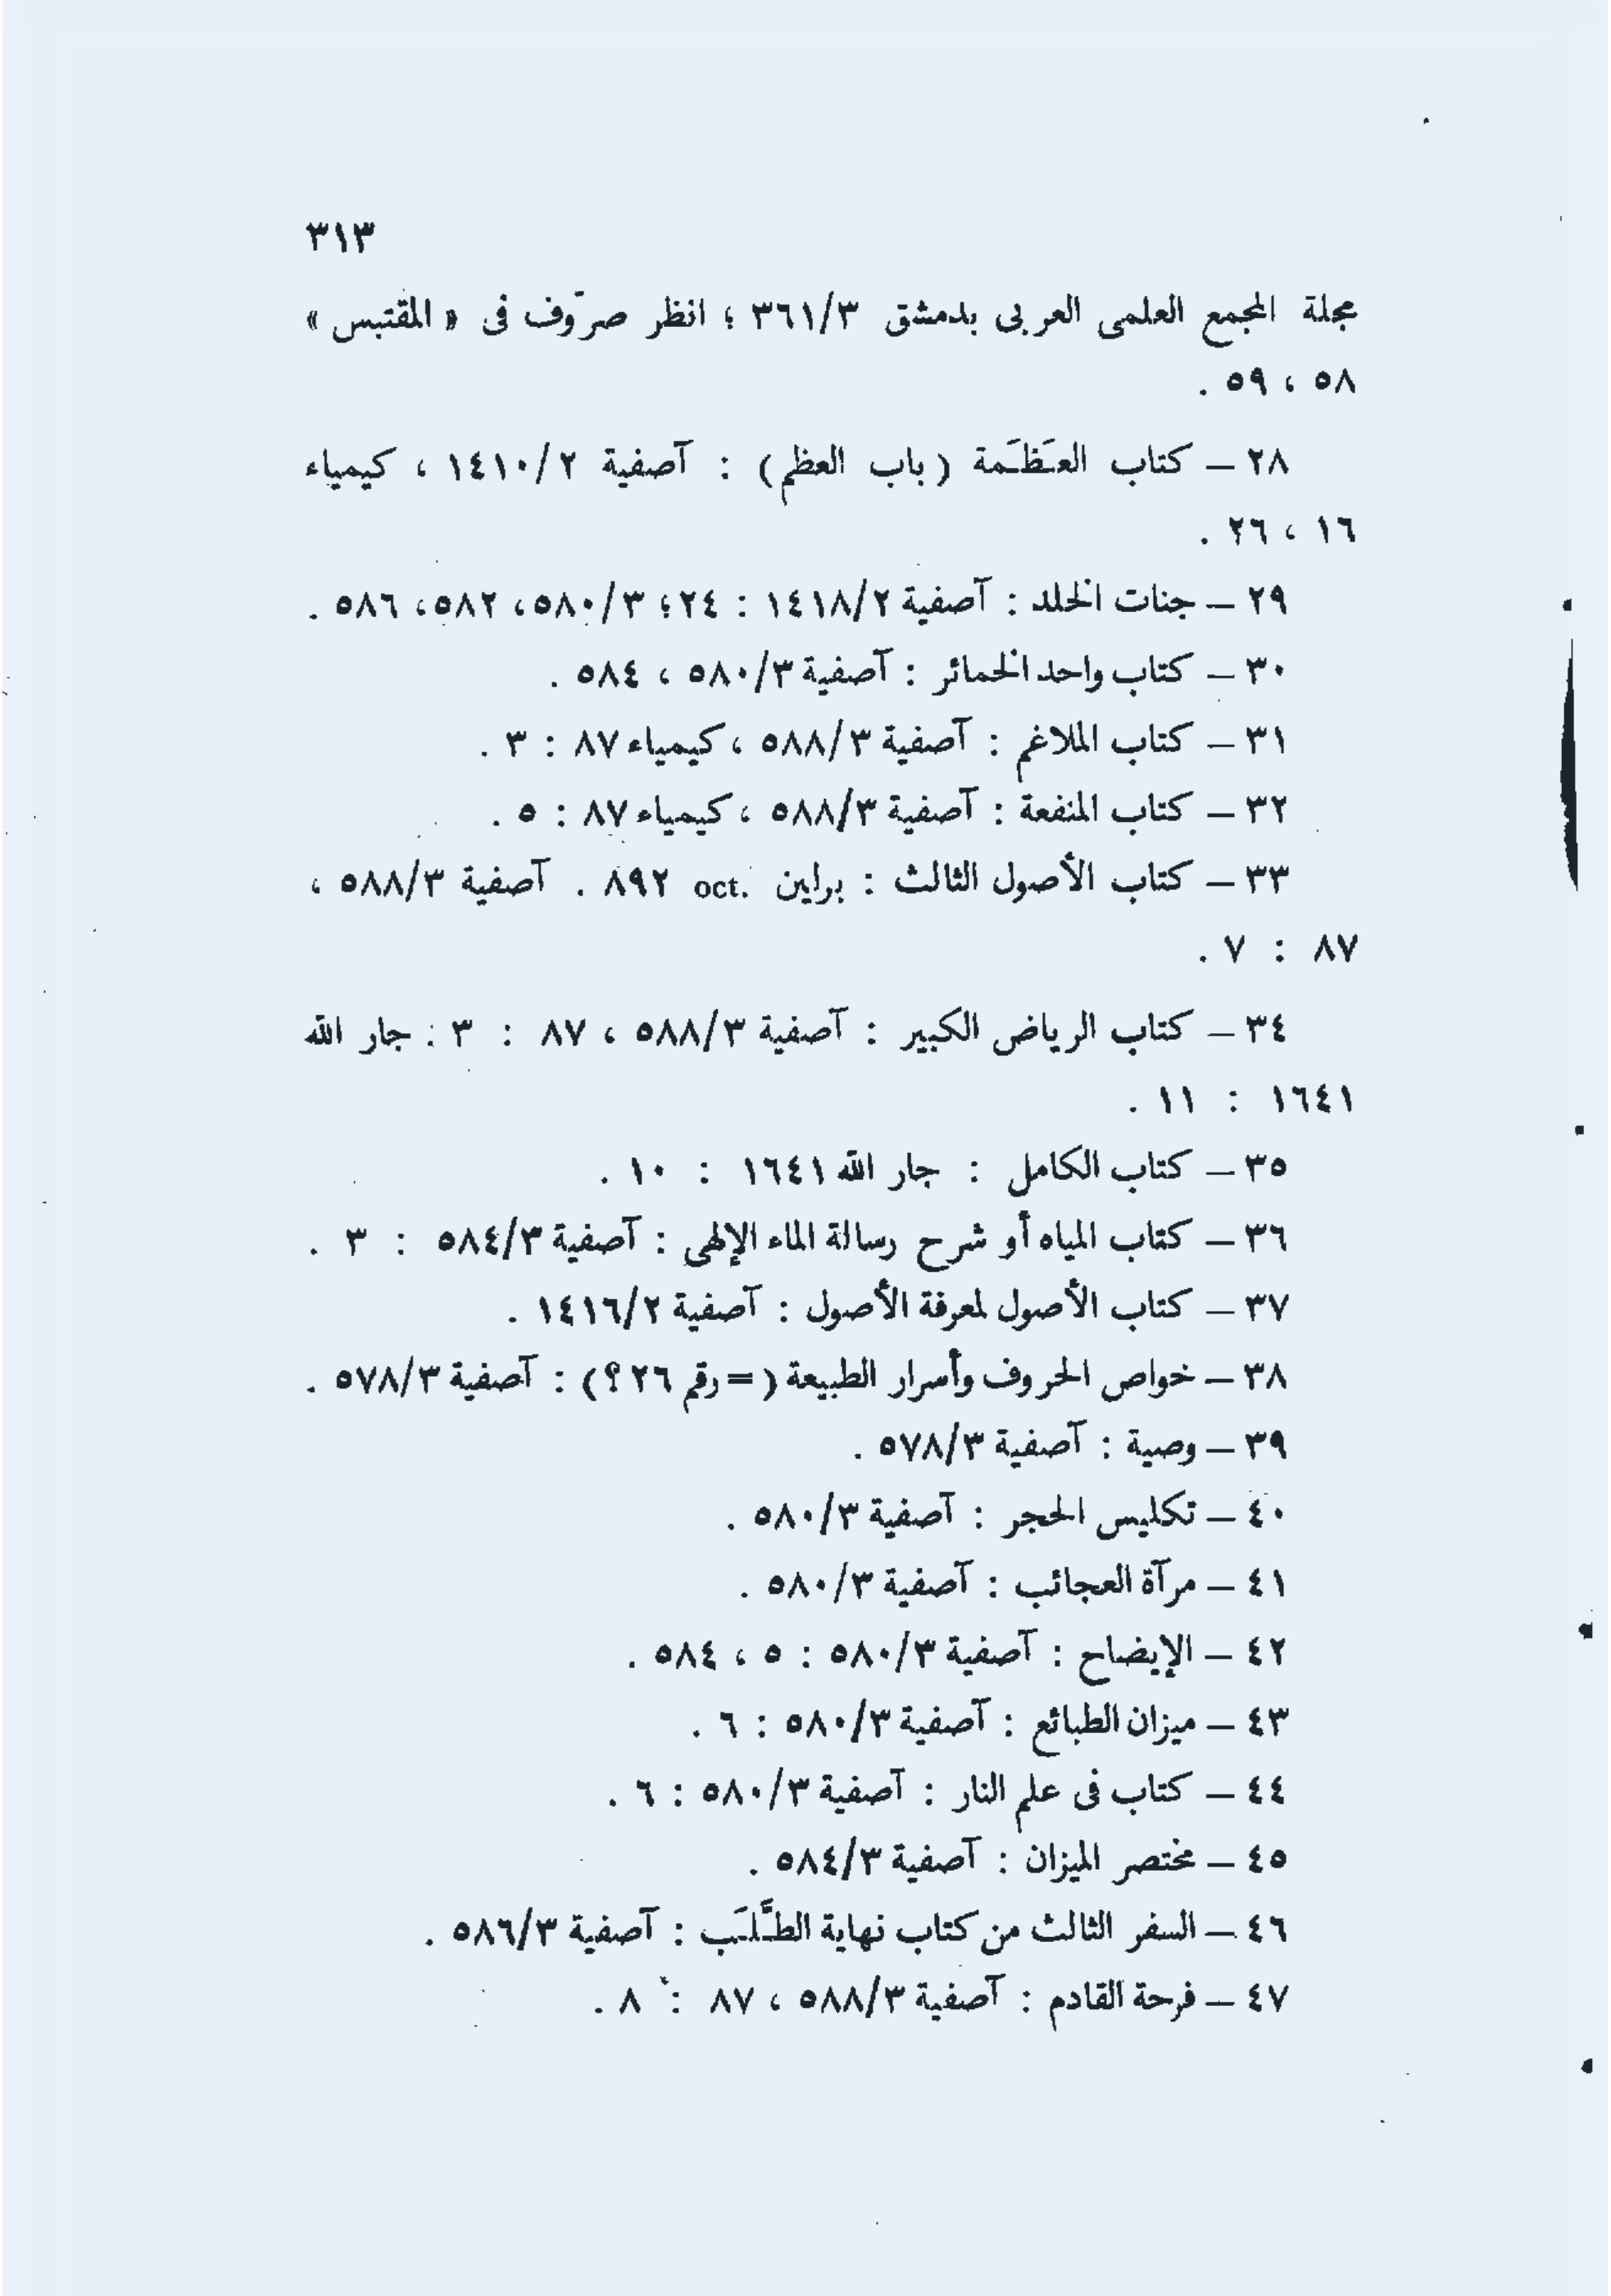 ٣١٣
مجلة المجمع العلمى العربى بدمشق ٣٦١/٣ ؛ انظر صرّوف فى « المقتبس »
٥٨ ، ٥٩ .
٢٨ – كتاب العَظَمة ( باب العظم ) : آصفية ١٤١٠/٢ ، كيمياء
١٦ ، ٢٦ .
٢٩ – جنات الخلد : آصفية ١٤١٨/٢ : ٢٤؛ ٥٨٠/٣، ٥٨٢، ٥٨٦ .
٣٠ – كتاب واحد الخمائر : آصفية ٥٨٠/٣ ، ٥٨٤ .
٣١ – كتاب الملاغم : آصفية ٥٨٨/٣ ، كيمياء ٨٧ : ٣ .
٣٢ – كتاب المنفعة : آصفية ٥٨٨/٣ ، كيمياء ٨٧ : ٥ .
٣٣ – كتاب الأصول الثالث : برلين oct. ٨٩٢ . آصفية ٥٨٨/٣ ،
٨٧ : ٧ .
٣٤ – كتاب الرياض الكبير : آصفية ٥٨٨/٣ ، ٨٧ : ٣ : جار الله
١٦٤١ : ١١ .
٣٥ – كتاب الكامل : جار الله ١٦٤١ : ١٠ .
٣٦ – كتاب المياه أو شرح رسالة الماء الإلهى : آصفية ٥٨٤/٣ : ٣ .
٣٧ – كتاب الأصول لمعرفة الأصول : آصفية ١٤١٦/٢ .
٣٨ – خواص الحروف وأسرار الطبيعة ( = رقم ٢٦ ؟ ) : آصفية ٥٧٨/٣ .
٣٩ – وصية : آصفية ٥٧٨/٣ .
٤٠ – تكليس الحجر : آصفية ٥٨٠/٣ .
٤١ – مرآة العجائب : آصفية ٥٨٠/٣ .
٤٢ – الإيضاح : آصفية ٥٨٠/٣ : ٥ ، ٥٨٤ .
٤٣ – ميزان الطبائع : آصفية ٥٨٠/٣ : ٦ .
٤٤ – كتاب فى علم النار : آصفية ٥٨٠/٣ : ٦ .
٤٥ – مختصر الميزان : آصفية ٥٨٤/٣ .
٤٦ – السفر الثالث من كتاب نهاية الطَّلَب : آصفية ٥٨٦/٣ .
٤٧ – فرحة القادم : آصفية ٥٨٨/٣ ، ٨٧ : ٨ .